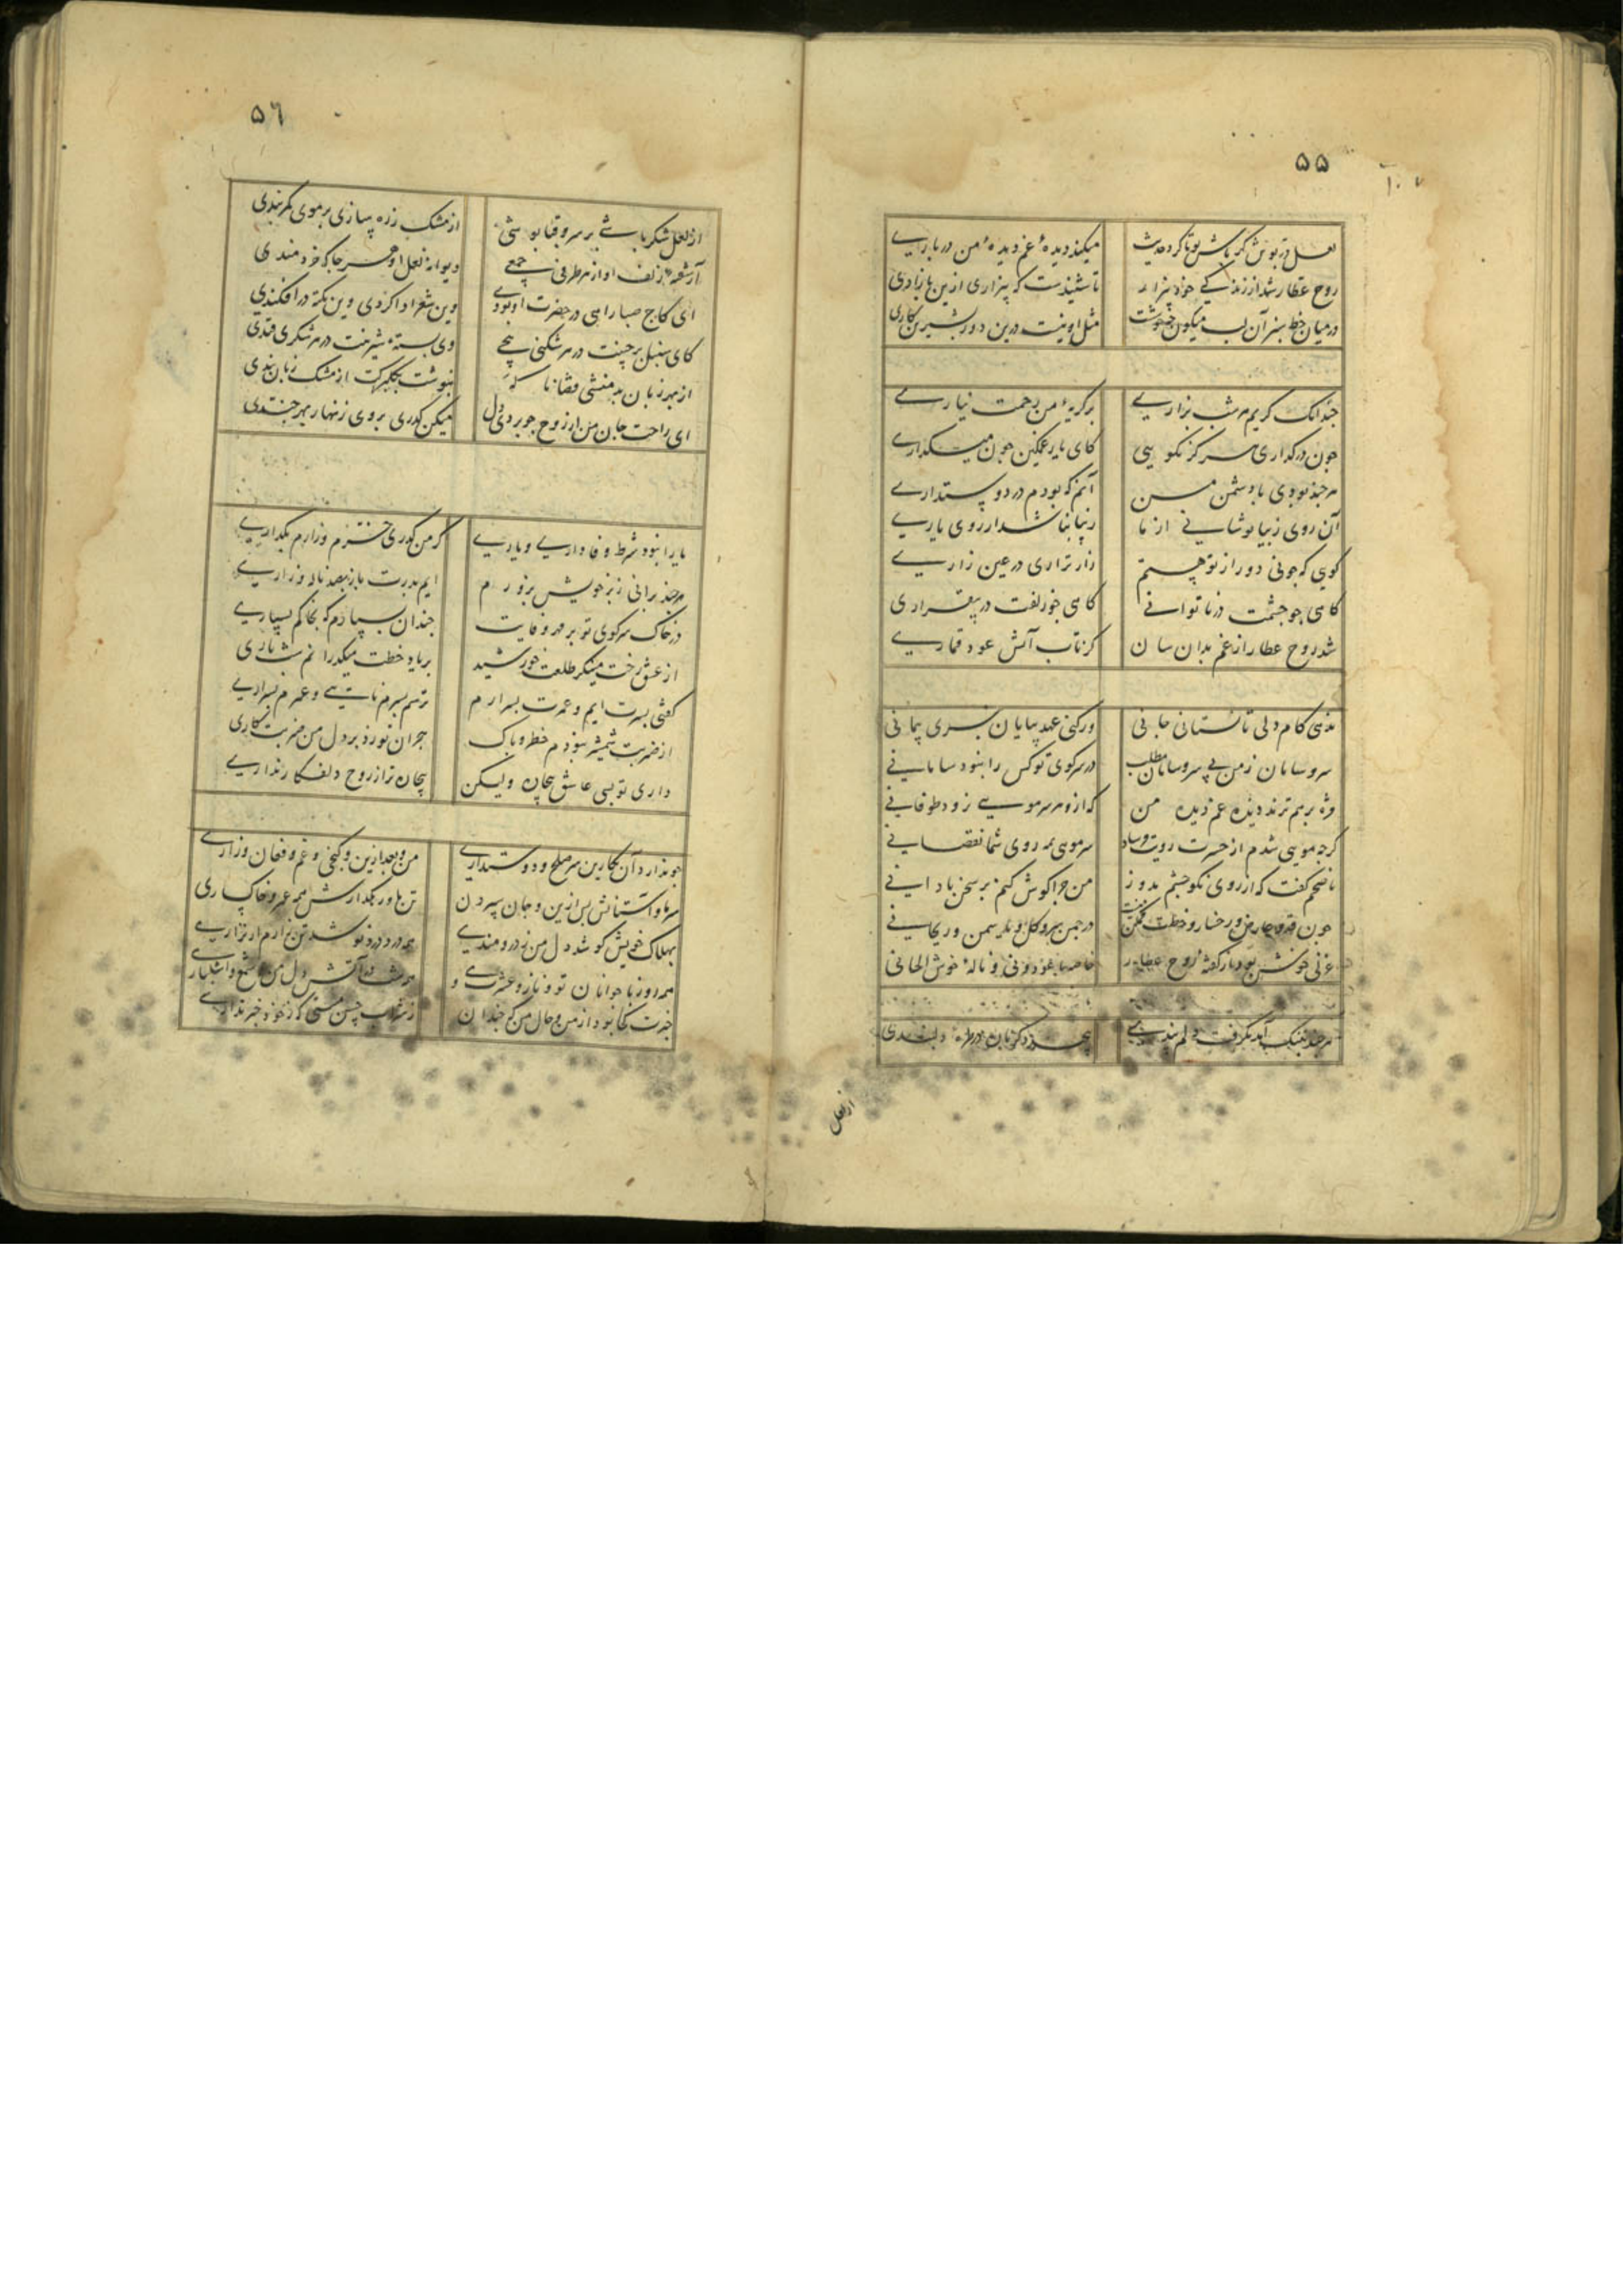 ۵۵
لعل در پوش گهر پاش تو تا کرد حدیث
میکند دیدهٔ غم دیدهٔ من دربارے
روح عطار شد از زندگی خود بیزار
تا شنیدست که بیزاری ازین
در میان خط سبز آن لب میکون
مثل او نیست درین دور بشیرین کاری
چندانک کریم هر شب بزارے
بر گریهٔ من رحمت نیارے
چون در گذاری هرگز نگویی
کای یار غمگین چون میگذارے
هرچند بودی با دشمن من
آنم که بودم در دوستدارے
آن روی زیبا پوشانے از ما
زیبا نباشد از روی یارے
کویی که چونی دور از تو هستم
زار نزاری در عین زارے
کاهی چو چشمت در ناتوانے
کاهی چو زلفت در بیقراری
شد روح عطار از غم بدان سان
کز تاب آتش عود قمارے
ندهی کام دلی تا نستانی جانی
ور کنی عهد بپایان نبری پیمانی
سر و سامان ز من بی سر و سامان مطلب
در سر کوی تو کس را نبود سامانے
مژه بر هم نزند دیدهٔ غم دیده من
که ازو هر سر مویے نزود طوفانے
کرچه مویی شدم از حسرت رویت
سر مویی به روی شما نقصانے
ناصحم کفت که از روی نکو چشم بدوز
من چرا گوش کنم بر سخن نادانے
چون قد و عارض و رخسار و خطت
در چمن سرو و گل و سمن و ریحانے
غزلی خوش بود از گفتهٔ روح عطار
خاصه با عود و نی و نالهٔ خوش الحانی
هرچند به تنگ آمد نگرفت دلم پندے
دلبندی
از لعل
۵٦
از لعل شکر پاشے بر سرو قبا پوشی
از مشک زره سازی بر موی کمربندی
آشفتهٔ زلف او از هر طرفی جمعے
دیوانهٔ لعل او هر جا که خردمندی
ای کاج صبا راهی در حضرت او بودے
وین شعر ادا کردی وین نکته در افکندی
کای سنبل پرچینت در هر شکنی پیچے
وی پستهٔ شیرینت در هر شکری قندی
از بهر زبان بد منشی قضا ناگه
بنوشت بگلبرگت از مشک زبان بندی
ای راحت جان من از روح چو بردی دل
میکن گذری بروی زنهار بهر چندی
یارا نبود شرط وفادارے و یارے
کز من گذری خسته و زارم بگذارے
هرچند برانی ز بر خویش بزورم
ایم بدرت باز بصد ناله و زارے
در خاک سر کوی تو بر مهر و وفایت
چندان بسپارم که بخاکم بسپارے
از عشق رخت مینگرم طلعت خورشید
بر یاد خطت میگذرانم شب تاری
گفتی بسرت ایم و عمرت بسر ارم
ترسم بسرم نایے و عمرم بسر ارے
از ضربت شمشیر نبودم خطر و باک
هجران تو زد بر دل من ضربت کاری
داری تو بسی عاشق بیجان ولیکن
بیجان تر از روح دلفگار ندارے
چو ندارد آن نگارین سر صلح و دوستدارے
من و بعد ازین و کنجی و غم و فغان و زارے
سر ما و آستانش پس ازین و جان سپردن
تن ما و رهگذارش همه عمر و خاکساری
بهلاک خویش کوشد دل من ز دردمندے
همه روز با جوانان تو و ناز و عشرت و
خبرت کجا بود از من و حال من که چندان
ز شراب حسن مستی که ز خود خبر ندارے